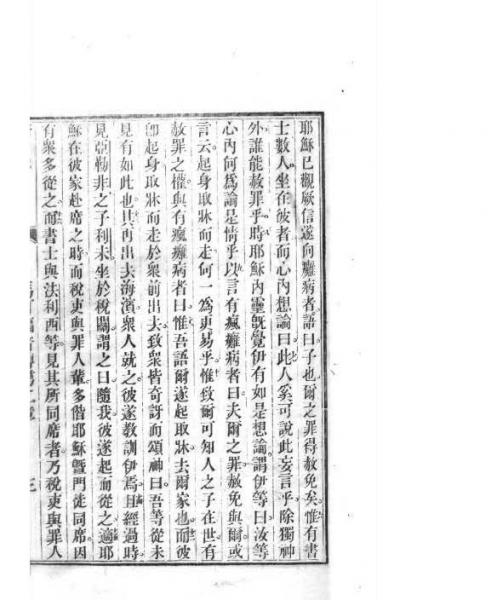 耶穌已觀厥信遂向癱病者語曰子也爾之罪得赦免矣惟有書
士數人坐在彼者而心內想論曰此人奚可說此妄言乎除獨神
外誰能赦罪乎時耶穌內靈旣覺伊有如是想論謂伊等曰汝等
心內何為論是情乎以言有瘋癱病者曰夫爾之罪赦免與爾或
言云起身取牀而走何一為更易乎惟致爾可知人之子在世有
赦罪之權與有瘋癱病者曰惟吾語爾遂起取牀去爾家也而彼
卽起身取牀而走於衆前出去致衆皆奇訝而頌神曰吾等從未
見有如此也其再出去海濱衆人就之彼遂教訓伊焉且經過時
見亞勒非之子利未坐於稅關謂之曰隨我彼遂起而從之適耶
穌在彼家赴席之時而稅吏與罪人輩多偕耶穌曁門徒同席因
有衆多從之而書士與法利西等見其所同席者乃稅吏與罪人
三